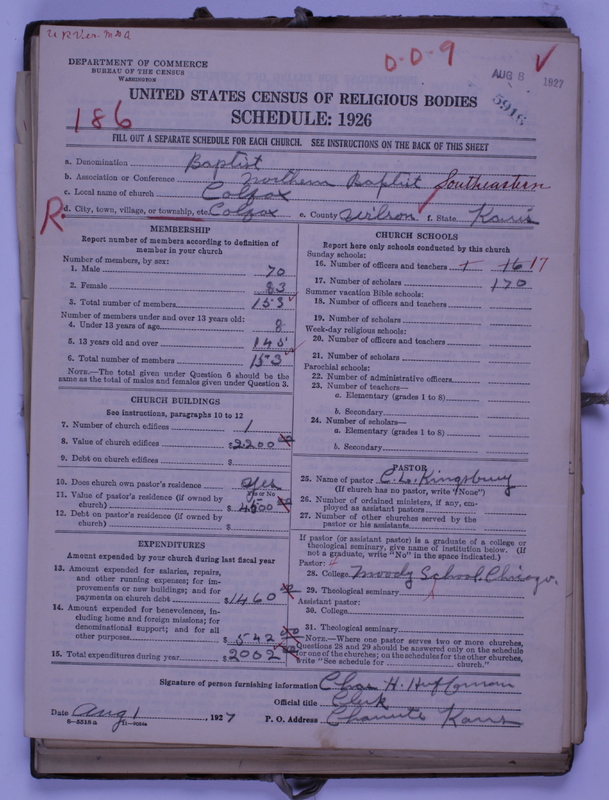 D-D-9
AUG 8 1927
5916
DEPARTMENT OF COMMERCE
BUREAU OF THE CENSUS
WASHINGTON
UNITED STATES CENSUS OF RELIGIOUS BODIES
186
SCHEDULE: 1926
FILL OUT A SEPARATE SCHEDULE FOR EACH CHURCH. SEE INSTRUCTIONS ON THE BACK OF THIS SHEET
a. Denomination Baptist
b. Association or Conference Northern Baptist Southeastern
c. Local name of church Colfax
R. d. City, town, village, or township, etc. Colfax e. County Wilson f. State Kans
MEMBERSHIP
Report number of members according to definition of member in your church
Number of members, by sex:
1. Male 70
2. Female 83
3. Total number of members 153
Number of members under and over 13 years old:
4. Under 13 years of age 8
5. 13 years old and over 145
6. Total number of members 153
NOTE.—The total given under Question 6 should be the
same as the total of males and females given under Question 3.
CHURCH BUILDINGS
See instructions, paragraphs 10 to 12
7. Number of church edifices 1
8. Value of church edifices $2200 00
9. Debt on church edifices $
10. Does church own pastor's residence yes
Yes or No
11. Value of pastor's residence (if owned by
church) $ 00
12. Debt on pastor's residence (if owned by
church) $
EXPENDITURES
Amount expended by your church during last fiscal year
13. Amount expended for salaries, repairs,
and other running expenses; for im-
provements or new buildings; and for
payments on church debt $1460
14. Amount expended for benevolences, in-
cluding home and foreign missions; for
denominational support; and for all
other purposes $542 00
15. Total expenditures during year $2002 00
CHURCH SCHOOLS
Report here only schools conducted by this church
Sunday schools:
16. Number of officers and teachers 16 17
17. Number of scholars 170
Summer vacation Bible schools:
18. Number of officers and teachers
19. Number of scholars
Week-day religious schools:
20. Number of officers and teachers
21. Number of scholars
Parochial schools:
22. Number of administrative officers
23. Number of teachers—
a. Elementary (grades 1 to 8)
b. Secondary
24. Number of scholars—
a. Elementary (grades 1 to 8)
b. Secondary
PASTOR
25. Name of pastor C. L. Kingsbury
(If church has no pastor, write "None")
26. Number of ordained ministers, if any, em-
ployed as assistant pastors
27. Number of other churches served by the
pastor or his assistants
If pastor (or assistant pastor) is a graduate of a college or
theological seminary, give name of institution below. (If
not a graduate, write "No" in the space indicated.)
Pastor:
28. College Moody School Chicago.
29. Theological seminary
Assistant pastor:
30. College
31. Theological seminary
NOTE.—Where one pastor serves two or more churches,
Questions 28 and 29 should be answered only on the schedule
for one of the churches; on the schedules for the other churches,
write "See schedule for church."
Signature of person furnishing information Chas H. Huffman
Official title Clerk
Date Aug 1, 1927 P. O. Address Chanute Kans